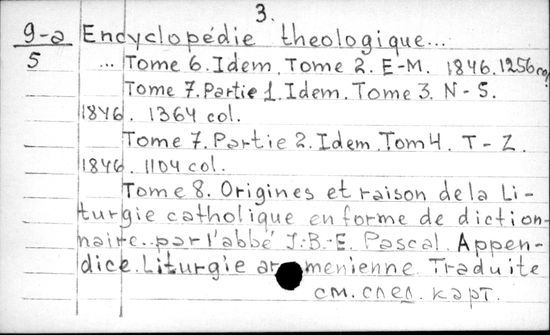 3.
9-а Encyclopédie theologique...
5 ... Tome 6. Idem. Tome 2. E-M. 1846. 1256 col.
Tome 7. Partie 1. Idem. Tome 3. N-S.
1846. 1364 col.
Tome 7. Partie 2. Idem. Tom 4. T-Z.
1846. 1104 col.
Tome 8. Origines et raison de la Li-
turgie catholique en forme de diction-
naire... par l'abbé J.-B.-E. Pascal. Appen-
dice. Liturgie armenienne. Traduite
см. след. карт.